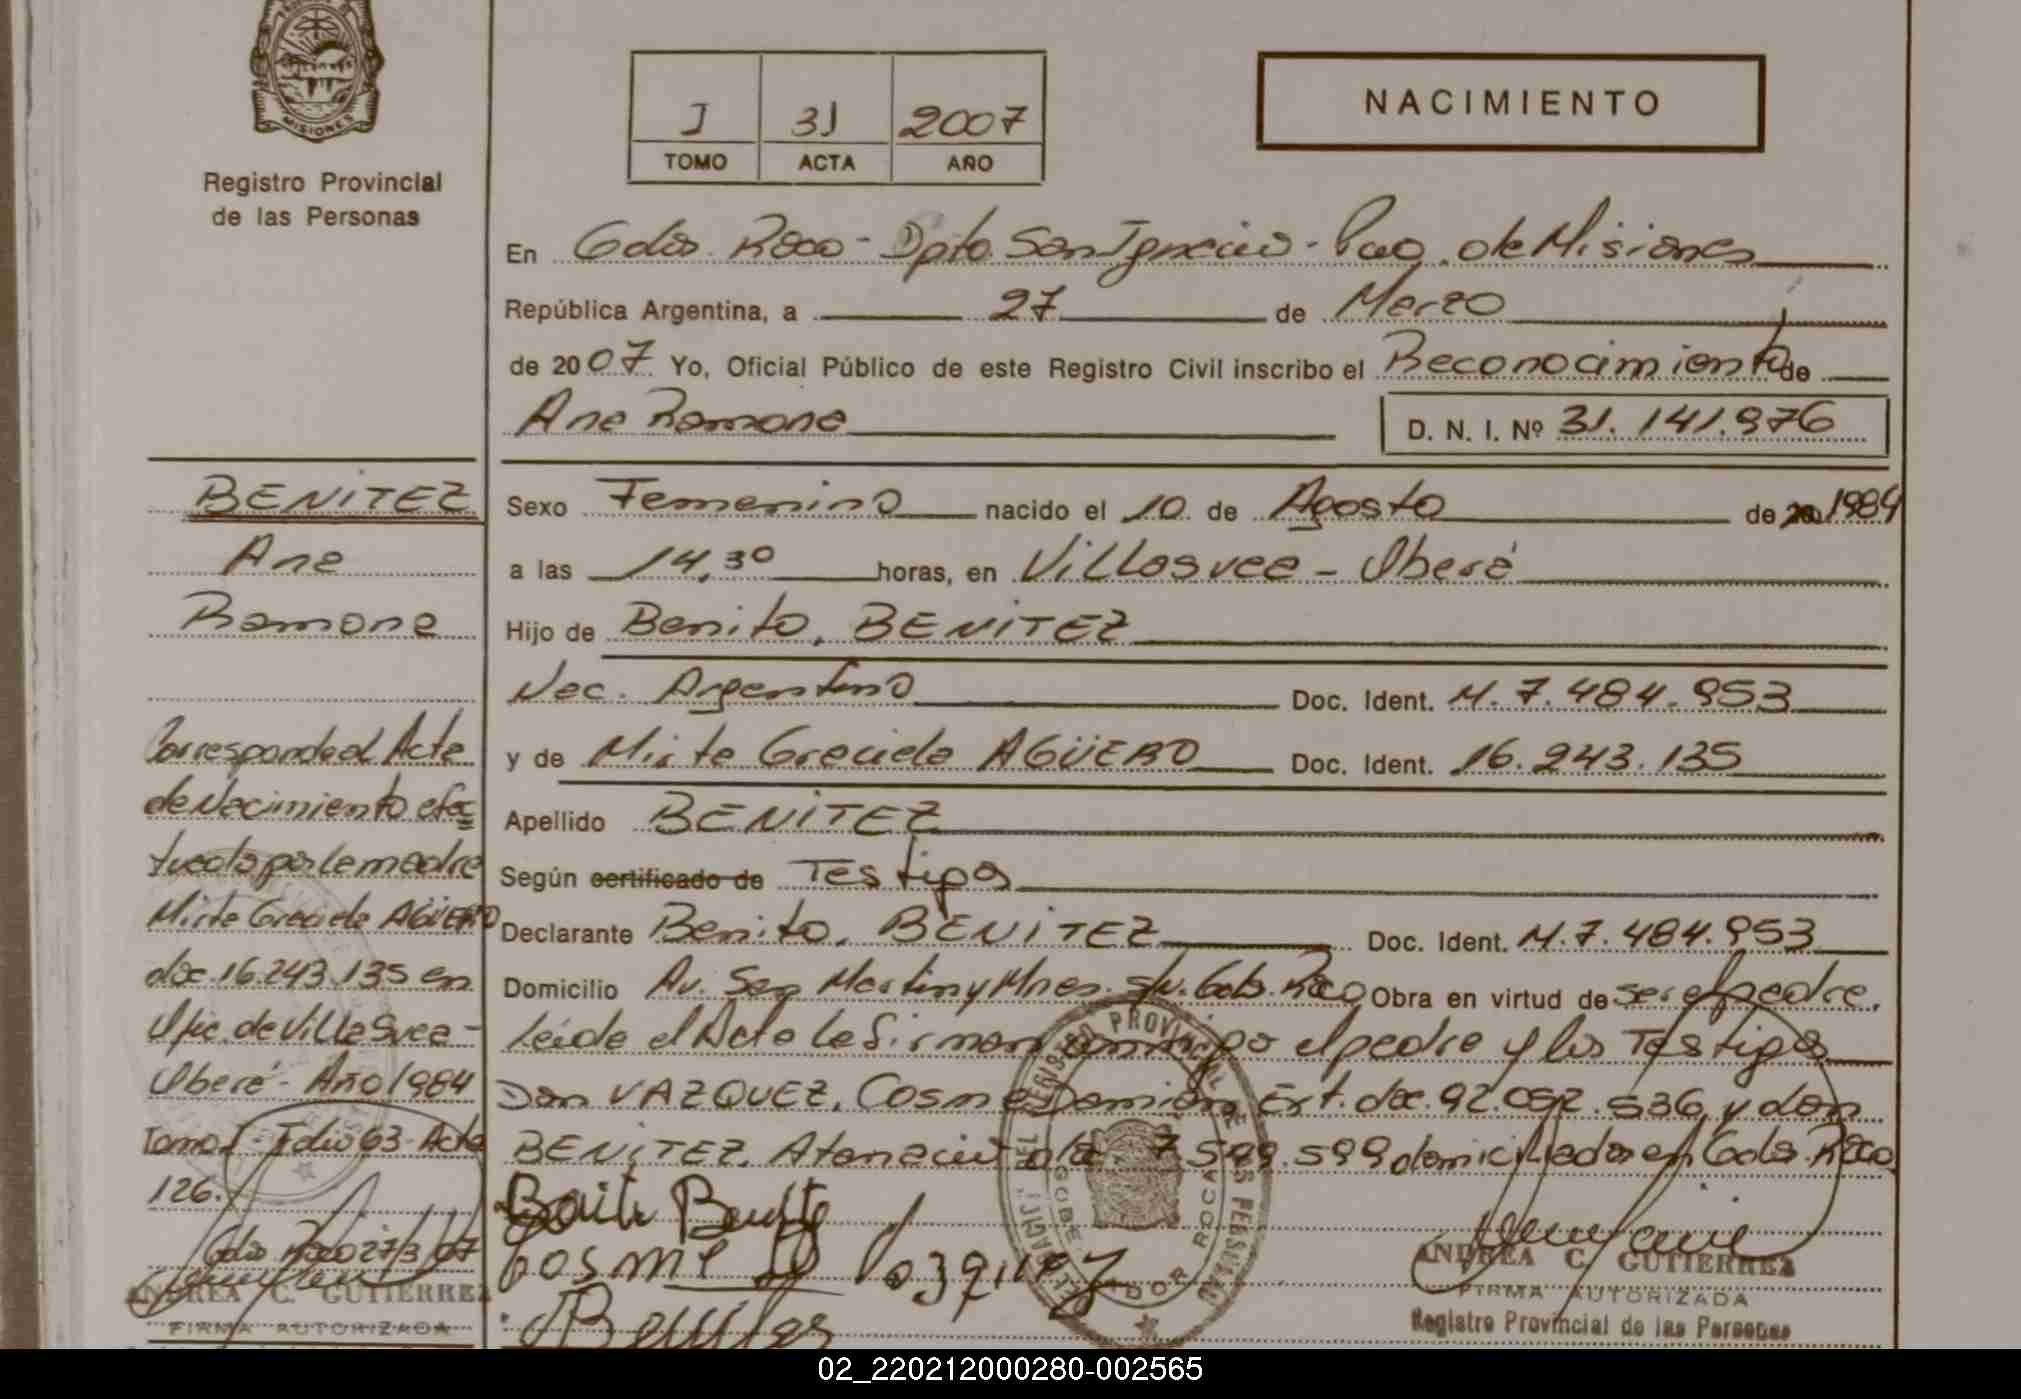 MISIONES
Registro Provincial
de las Personas
I 31 2007
TOMO ACTA AÑO
NACIMIENTO
En Gdor. Roca - Dpto. San Ignacio - Pcia. de Misiones
República Argentina, a 27 de Marzo
de 2007 Yo, Oficial Público de este Registro Civil inscribo el Reconocimiento de
Ana Ramona D. N. I. Nº 31.141.976
Sexo Femenino nacido el 10 de Agosto de 1984
a las 14,30 horas, en Villa Svea - Oberá
Hijo de Benito, BENITEZ
Nac. Argentino Doc. Ident. M. 7.484.953
y de Mirta Graciela AGÜERO Doc. Ident. 16.243.135
Apellido BENITEZ
Según certificado de Testigos
Declarante Benito, BENITEZ Doc. Ident. M.7.484.953
Domicilio Av. San Martin y Mnes. s/n. Gdor. Roca Obra en virtud de ser el padre.
Leída el Acta la firman conmigo el padre y los Testigos
Don VAZQUEZ, Cosme Damián, Ext. doc. 92.092.536, y don
BENITEZ, Atanacio doc. 7.599.599 domiciliados en Gdor. Roca
BENITEZ
Ana
Ramona
Corresponde al Acta
de Nacimiento efec
tuada por la madre
Mirta Graciela AGÜERO
doc. 16.243.135 en
Ofic. de Villa Svea -
Oberá - Año 1984
Tomo I - Folio 63 - Acta
126.
Gdor. Roca 27/3/07
ANDREA C. GUTIERREZ
FIRMA AUTORIZADA
Cosme D Vazquez
REGISTRO PROVINCIAL DE LAS PERSONAS
GOBERNADOR ROCA
ANDREA C. GUTIERREZ
FIRMA AUTORIZADA
Registro Provincial de las Personas
02_220212000280-002565